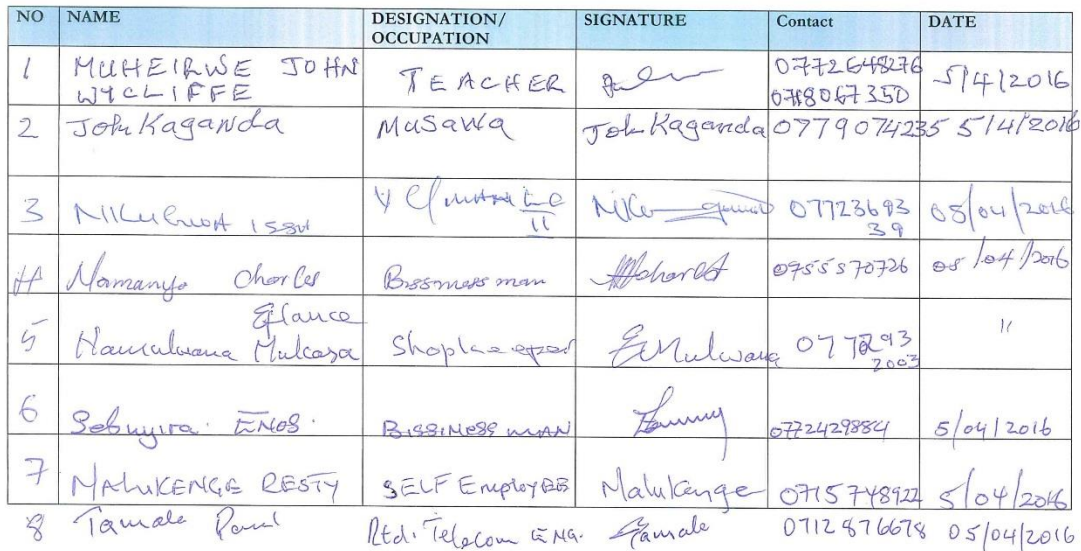 NO NAME DESIGNATION/ OCCUPATION SIGNATURE Contact DATE
1 MUHEIRWE JOHN WYCLIFFE TEACHER 0772648276 0788067350 5/4/2016
2 John Kaganda Musawa John Kaganda 0779074235 5/4/2016
3 II 0772369339 05/04/2016
4 Charles Bissmess man 0755570726 05/04/2016
5 Mukasa Shopkeeper 0772932003 "
6 Sebuyira ENOS. BISSINESS MAN 0772429884 5/04/2016
7 MALUKENGE RESTY SELF Employ Malukenge 0715748922 5/04/2016
8 Tamale Paul Rtd. Telecom ENG. Tamale 0712876678 05/04/2016